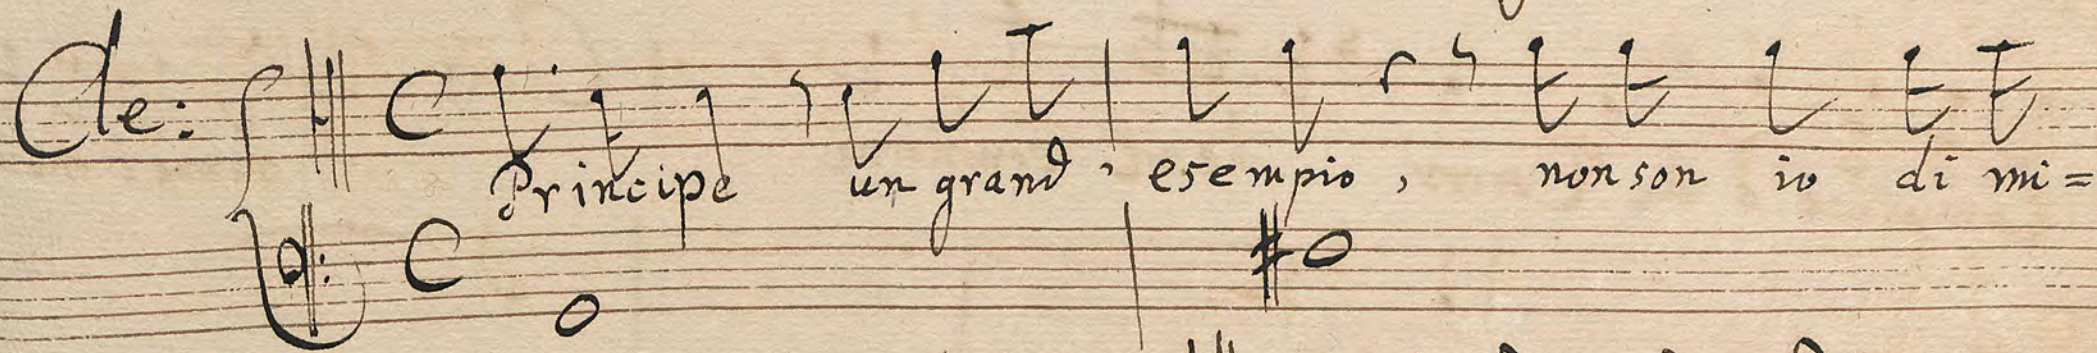 Cle:
Principe un grand' esempio, non son io di mi=